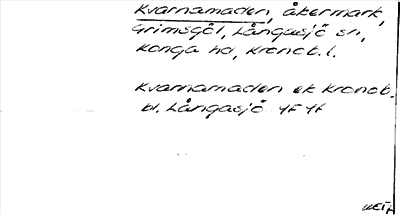 Kvarnamaden, åkermark,
Grimsgöl, Långasjö sn,
Konga hd, Kronob. l.
Kvarnamaden ek Kronob.
bl. Långasjö